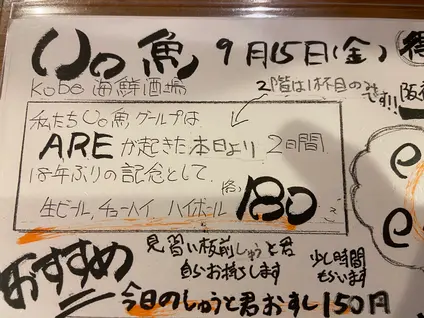 Uo魚 9月15日(金)
Kobe海鮮酒場
2階は1杯目のみです!!
私たちUo魚グループは
AREが起きた本日より 2日間
18年ぶりの記念として
生ビール、チューハイ ハイボール 各180
見習い板前しゅうと君
自らお持ちします
少し時間
もらいます
おすすめ
今日のしゅうと君おすし150円